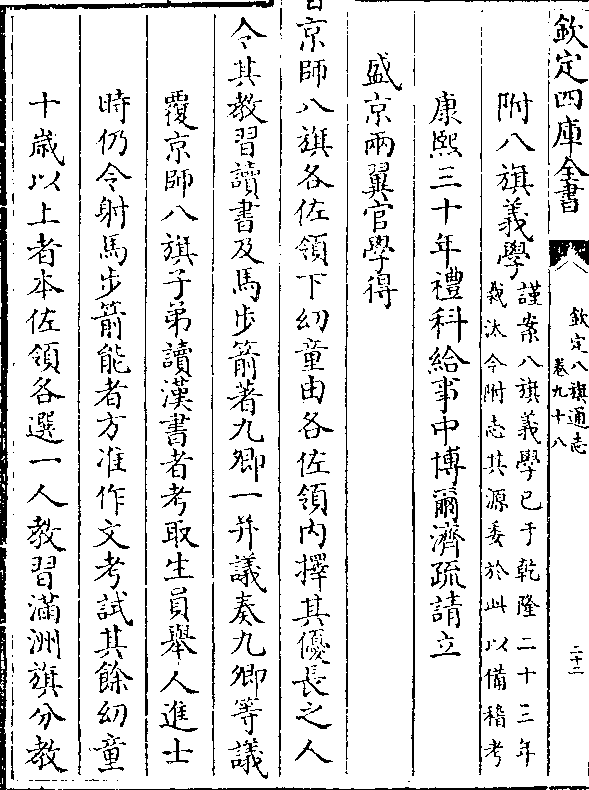 欽定四庫全書
欽定八旗通志
卷九十八
二十二
附八旗義學謹案八旗義學已于乾隆二十三年
裁汰今附志其源委於此以備稽考
康熙三十年禮科給事中博爾濟疏請立
盛京兩翼官學得
旨京師八旗各佐領下幼童由各佐領內擇其優長之人
令其教習讀書及馬步箭著九卿一并議奏九卿等議
覆京師八旗子弟讀漢書者考取生員舉人進士
時仍令射馬步箭能者方准作文考試其餘幼童
十歲以上者本佐領各選一人教習滿洲旗分教